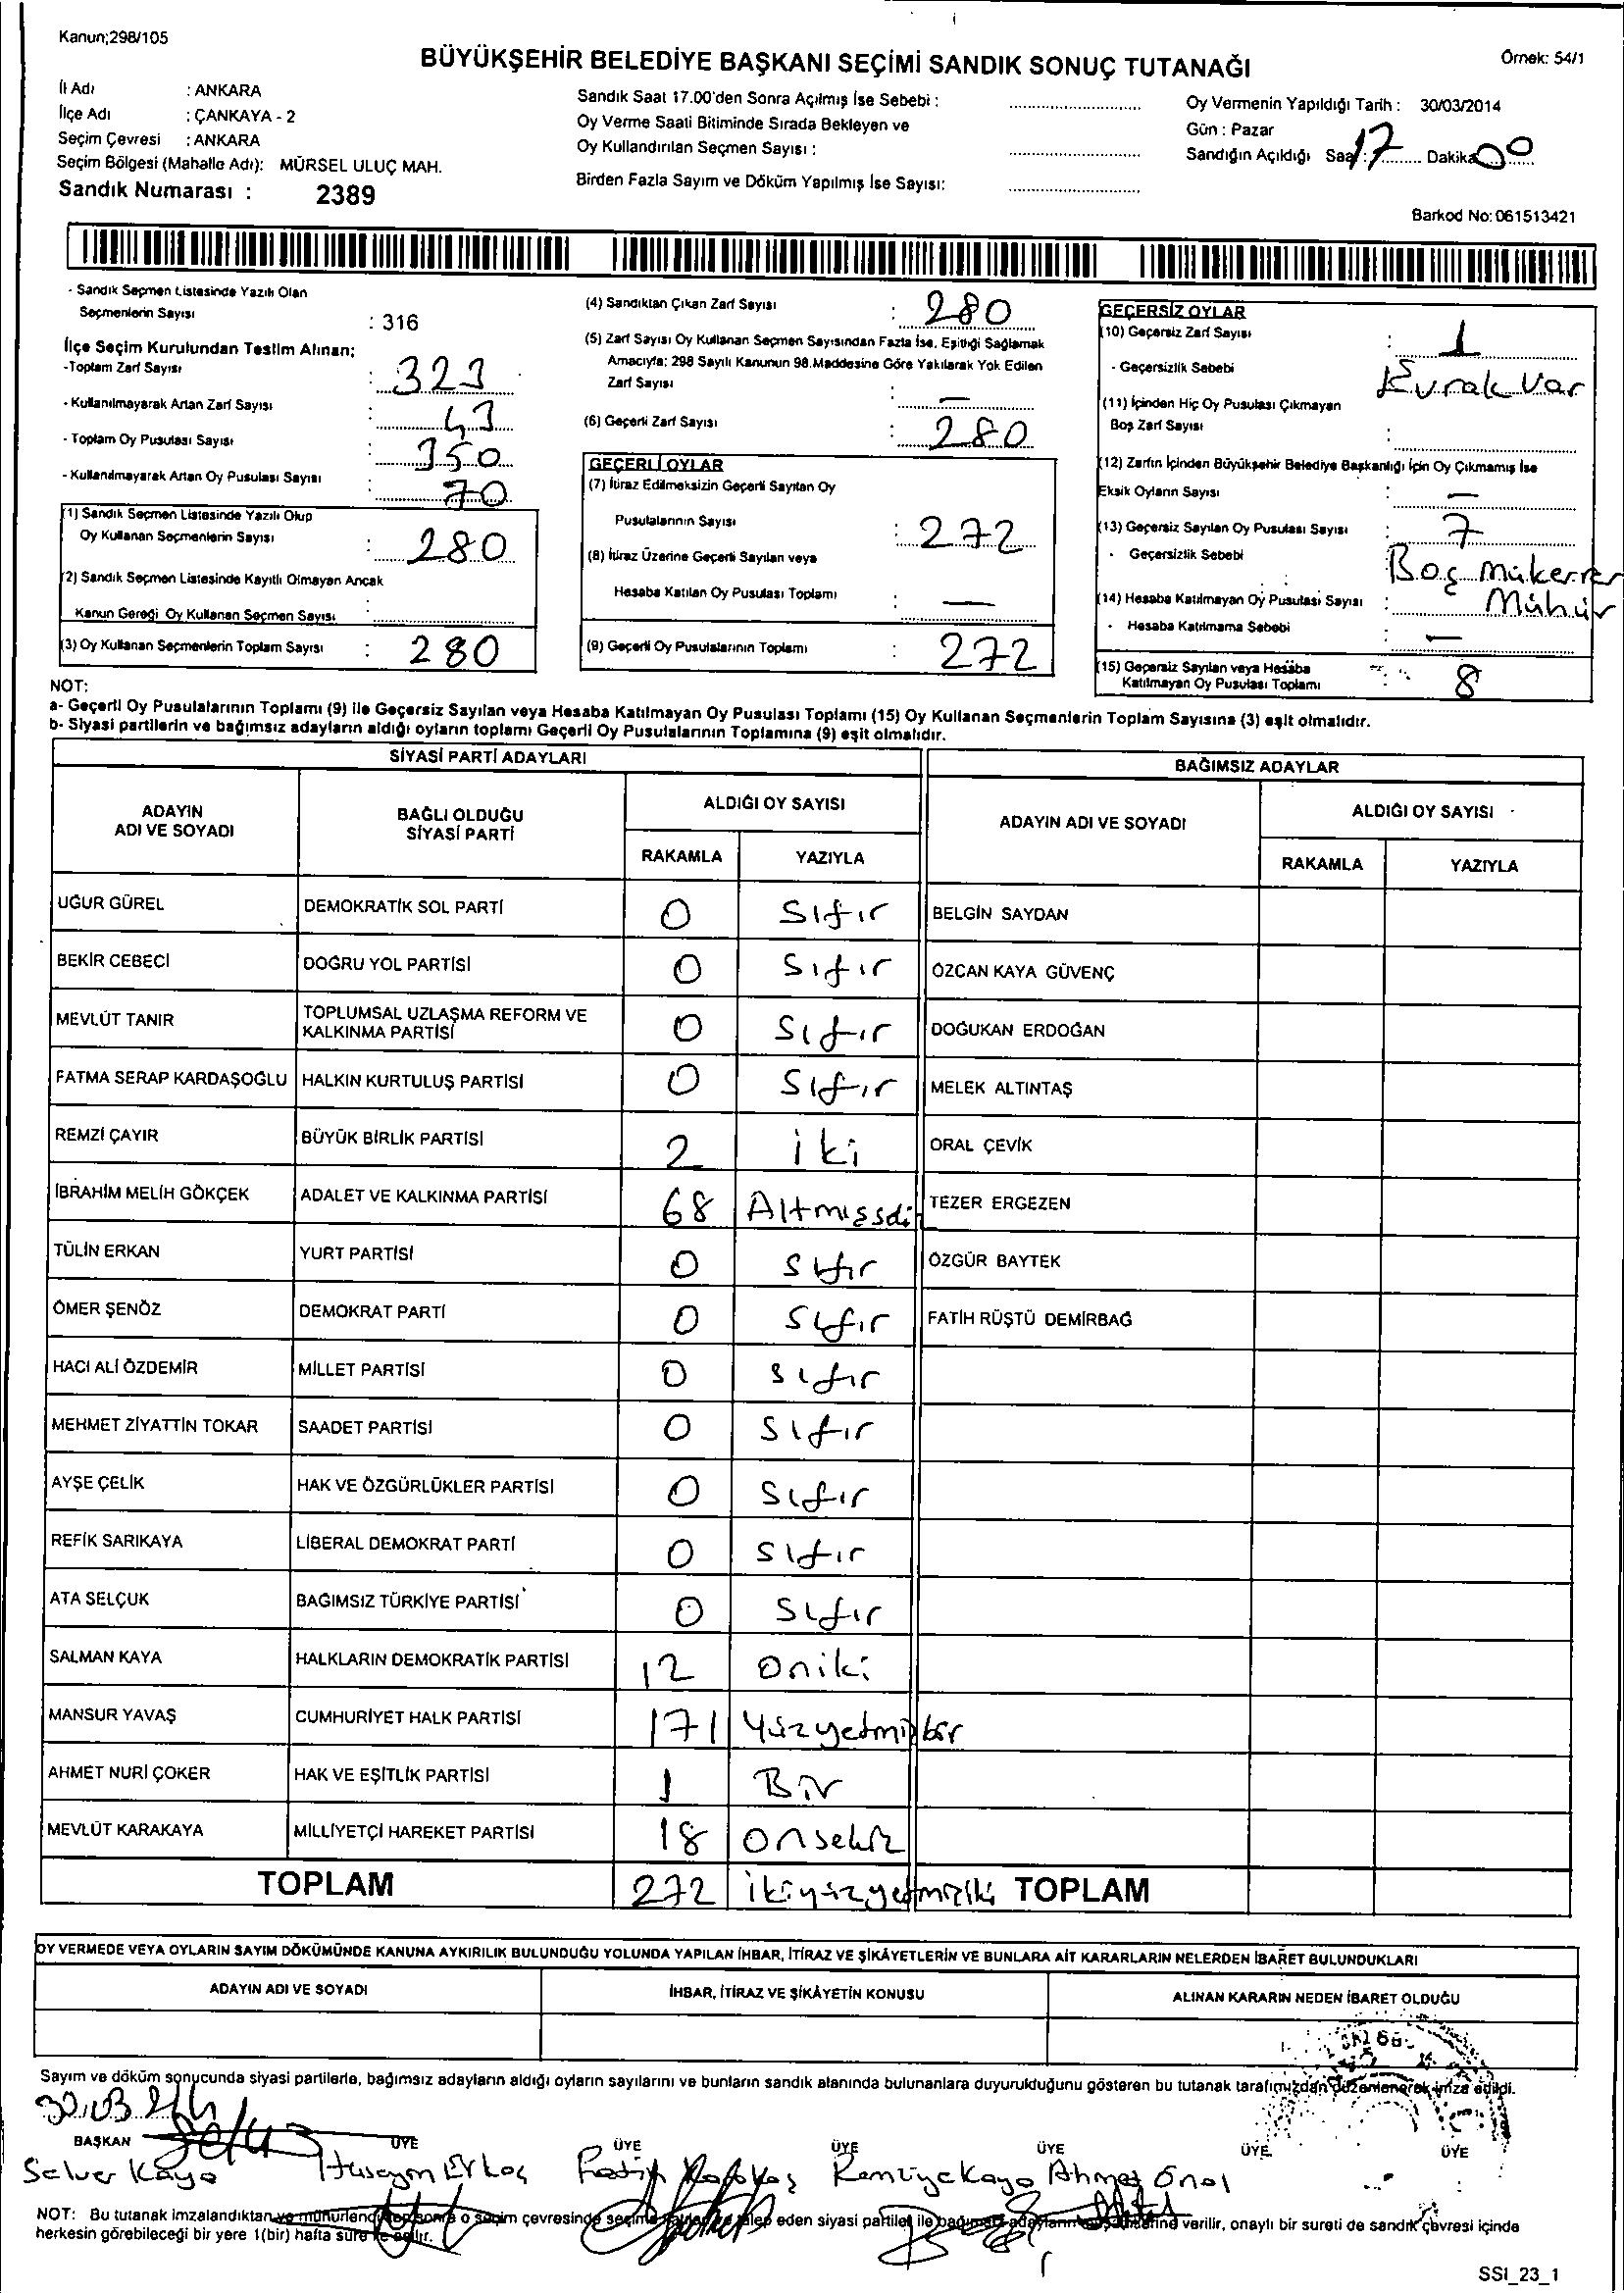 Kanun;298/105
BÜYÜKŞEHİR BELEDİYE BAŞKANI SEÇİMİ SANDIK SONUÇ TUTANAĞI
Örnek: 54/1
İl Adı : ANKARA
İlçe Adı : ÇANKAYA - 2
Seçim Çevresi : ANKARA
Seçim Bölgesi (Mahalle Adı): MÜRSEL ULUÇ MAH.
Sandık Numarası : 2389
Sandık Saat 17.00'den Sonra Açılmış İse Sebebi : ........................
Oy Verme Saati Bitiminde Sırada Bekleyen ve
Oy Kullandırılan Seçmen Sayısı : ........................
Birden Fazla Sayım ve Döküm Yapılmış İse Sayısı: ........................
Oy Vermenin Yapıldığı Tarih : 30/03/2014
Gün : Pazar
Sandığın Açıldığı Saat : 17 Dakika 00
Barkod No: 061513421
- Sandık Seçmen Listesinde Yazılı Olan
Seçmenlerin Sayısı : 316
İlçe Seçim Kurulundan Teslim Alınan;
-Toplam Zarf Sayısı : 323
- Kullanılmayarak Artan Zarf Sayısı : 43
- Toplam Oy Pusulası Sayısı : 350
- Kullanılmayarak Artan Oy Pusulası Sayısı : 70
(1) Sandık Seçmen Listesinde Yazılı Olup
Oy Kullanan Seçmenlerin Sayısı : 280
(2) Sandık Seçmen Listesinde Kayıtlı Olmayan Ancak
Kanun Gereği Oy Kullanan Seçmen Sayısı :
(3) Oy Kullanan Seçmenlerin Toplam Sayısı : 280
(4) Sandıktan Çıkan Zarf Sayısı : 280
(5) Zarf Sayısı Oy Kullanan Seçmen Sayısından Fazla İse, Eşitliği Sağlamak
Amacıyla; 298 Sayılı Kanunun 98.Maddesine Göre Yakılarak Yok Edilen
Zarf Sayısı : —
(6) Geçerli Zarf Sayısı : 280
GEÇERLİ OYLAR
(7) İtiraz Edilmeksizin Geçerli Sayılan Oy
Pusulalarının Sayısı : 272
(8) İtiraz Üzerine Geçerli Sayılan veya
Hesaba Katılan Oy Pusulası Toplamı : —
(9) Geçerli Oy Pusulalarının Toplamı : 272
GEÇERSİZ OYLAR
(10) Geçersiz Zarf Sayısı : 1
- Geçersizlik Sebebi Evrak Var
(11) İçinden Hiç Oy Pusulası Çıkmayan
Boş Zarf Sayısı :
(12) Zarfın İçinden Büyükşehir Belediye Başkanlığı İçin Oy Çıkmamış İse
Eksik Oyların Sayısı : —
(13) Geçersiz Sayılan Oy Pusulası Sayısı : 7
- Geçersizlik Sebebi : Boş mükerrer
Mühür
(14) Hesaba Katılmayan Oy Pusulası Sayısı :
- Hesaba Katılmama Sebebi : —
(15) Geçersiz Sayılan veya Hesaba
Katılmayan Oy Pusulası Toplamı : 8
NOT:
a- Geçerli Oy Pusulalarının Toplamı (9) ile Geçersiz Sayılan veya Hesaba Katılmayan Oy Pusulası Toplamı (15) Oy Kullanan Seçmenlerin Toplam Sayısına (3) eşit olmalıdır.
b- Siyasi partilerin ve bağımsız adayların aldığı oyların toplamı Geçerli Oy Pusulalarının Toplamına (9) eşit olmalıdır.
SİYASİ PARTİ ADAYLARI
BAĞIMSIZ ADAYLAR
ADAYIN
ADI VE SOYADI
BAĞLI OLDUĞU
SİYASİ PARTİ
ALDIĞI OY SAYISI
RAKAMLA YAZIYLA
ADAYIN ADI VE SOYADI
ALDIĞI OY SAYISI
RAKAMLA YAZIYLA
UĞUR GÜREL DEMOKRATİK SOL PARTİ 0 Sıfır BELGİN SAYDAN
BEKİR CEBECİ DOĞRU YOL PARTİSİ 0 Sıfır ÖZCAN KAYA GÜVENÇ
MEVLÜT TANIR TOPLUMSAL UZLAŞMA REFORM VE
KALKINMA PARTİSİ 0 Sıfır DOĞUKAN ERDOĞAN
FATMA SERAP KARDAŞOĞLU HALKIN KURTULUŞ PARTİSİ 0 Sıfır MELEK ALTINTAŞ
REMZİ ÇAYIR BÜYÜK BİRLİK PARTİSİ 2 iki ORAL ÇEVİK
İBRAHİM MELİH GÖKÇEK ADALET VE KALKINMA PARTİSİ 68 Altmışs TEZER ERGEZEN
TÜLİN ERKAN YURT PARTİSİ 0 Sıfır ÖZGÜR BAYTEK
ÖMER ŞENÖZ DEMOKRAT PARTİ 0 Sıfır FATİH RÜŞTÜ DEMİRBAĞ
HACI ALİ ÖZDEMİR MİLLET PARTİSİ 0 Sıfır
MEHMET ZİYATTİN TOKAR SAADET PARTİSİ 0 Sıfır
AYŞE ÇELİK HAK VE ÖZGÜRLÜKLER PARTİSİ 0 Sıfır
REFİK SARIKAYA LİBERAL DEMOKRAT PARTİ 0 Sıfır
ATA SELÇUK BAĞIMSIZ TÜRKİYE PARTİSİ 0 Sıfır
SALMAN KAYA HALKLARIN DEMOKRATİK PARTİSİ 12 Oniki
MANSUR YAVAŞ CUMHURİYET HALK PARTİSİ 171 Yüzyetmişbir
AHMET NURİ ÇOKER HAK VE EŞİTLİK PARTİSİ 1 Bir
MEVLÜT KARAKAYA MİLLİYETÇİ HAREKET PARTİSİ 18 onsekiz
TOPLAM 272 ikiyüzyetmişiki TOPLAM
OY VERMEDE VEYA OYLARIN SAYIM DÖKÜMÜNDE KANUNA AYKIRILIK BULUNDUĞU YOLUNDA YAPILAN İHBAR, İTİRAZ VE ŞİKÂYETLERİN VE BUNLARA AİT KARARLARIN NELERDEN İBARET BULUNDUKLARI
ADAYIN ADI VE SOYADI İHBAR, İTİRAZ VE ŞİKÂYETİN KONUSU ALINAN KARARIN NEDEN İBARET OLDUĞU
Sayım ve döküm sonucunda siyasi partilerle, bağımsız adayların aldığı oyların sayılarını ve bunların sandık alanında bulunanlara duyurulduğunu gösteren bu tutanak tarafımızdan düzenlenerek imza edildi.
BAŞKAN ÜYE ÜYE ÜYE ÜYE ÜYE ÜYE
Selver Kaya Hüseyin Fatih Remziye Kaya Ahmet Önal
NOT: Bu tutanak imzalandıktan ve mühürlendikten sonra o seçim çevresinde seçime katılan ve talep eden siyasi partiler ile bağımsız adayların verilir, onaylı bir sureti de sandık çevresi içinde
herkesin görebileceği bir yere 1(bir) hafta süre ile asılır.
SSI_23_1